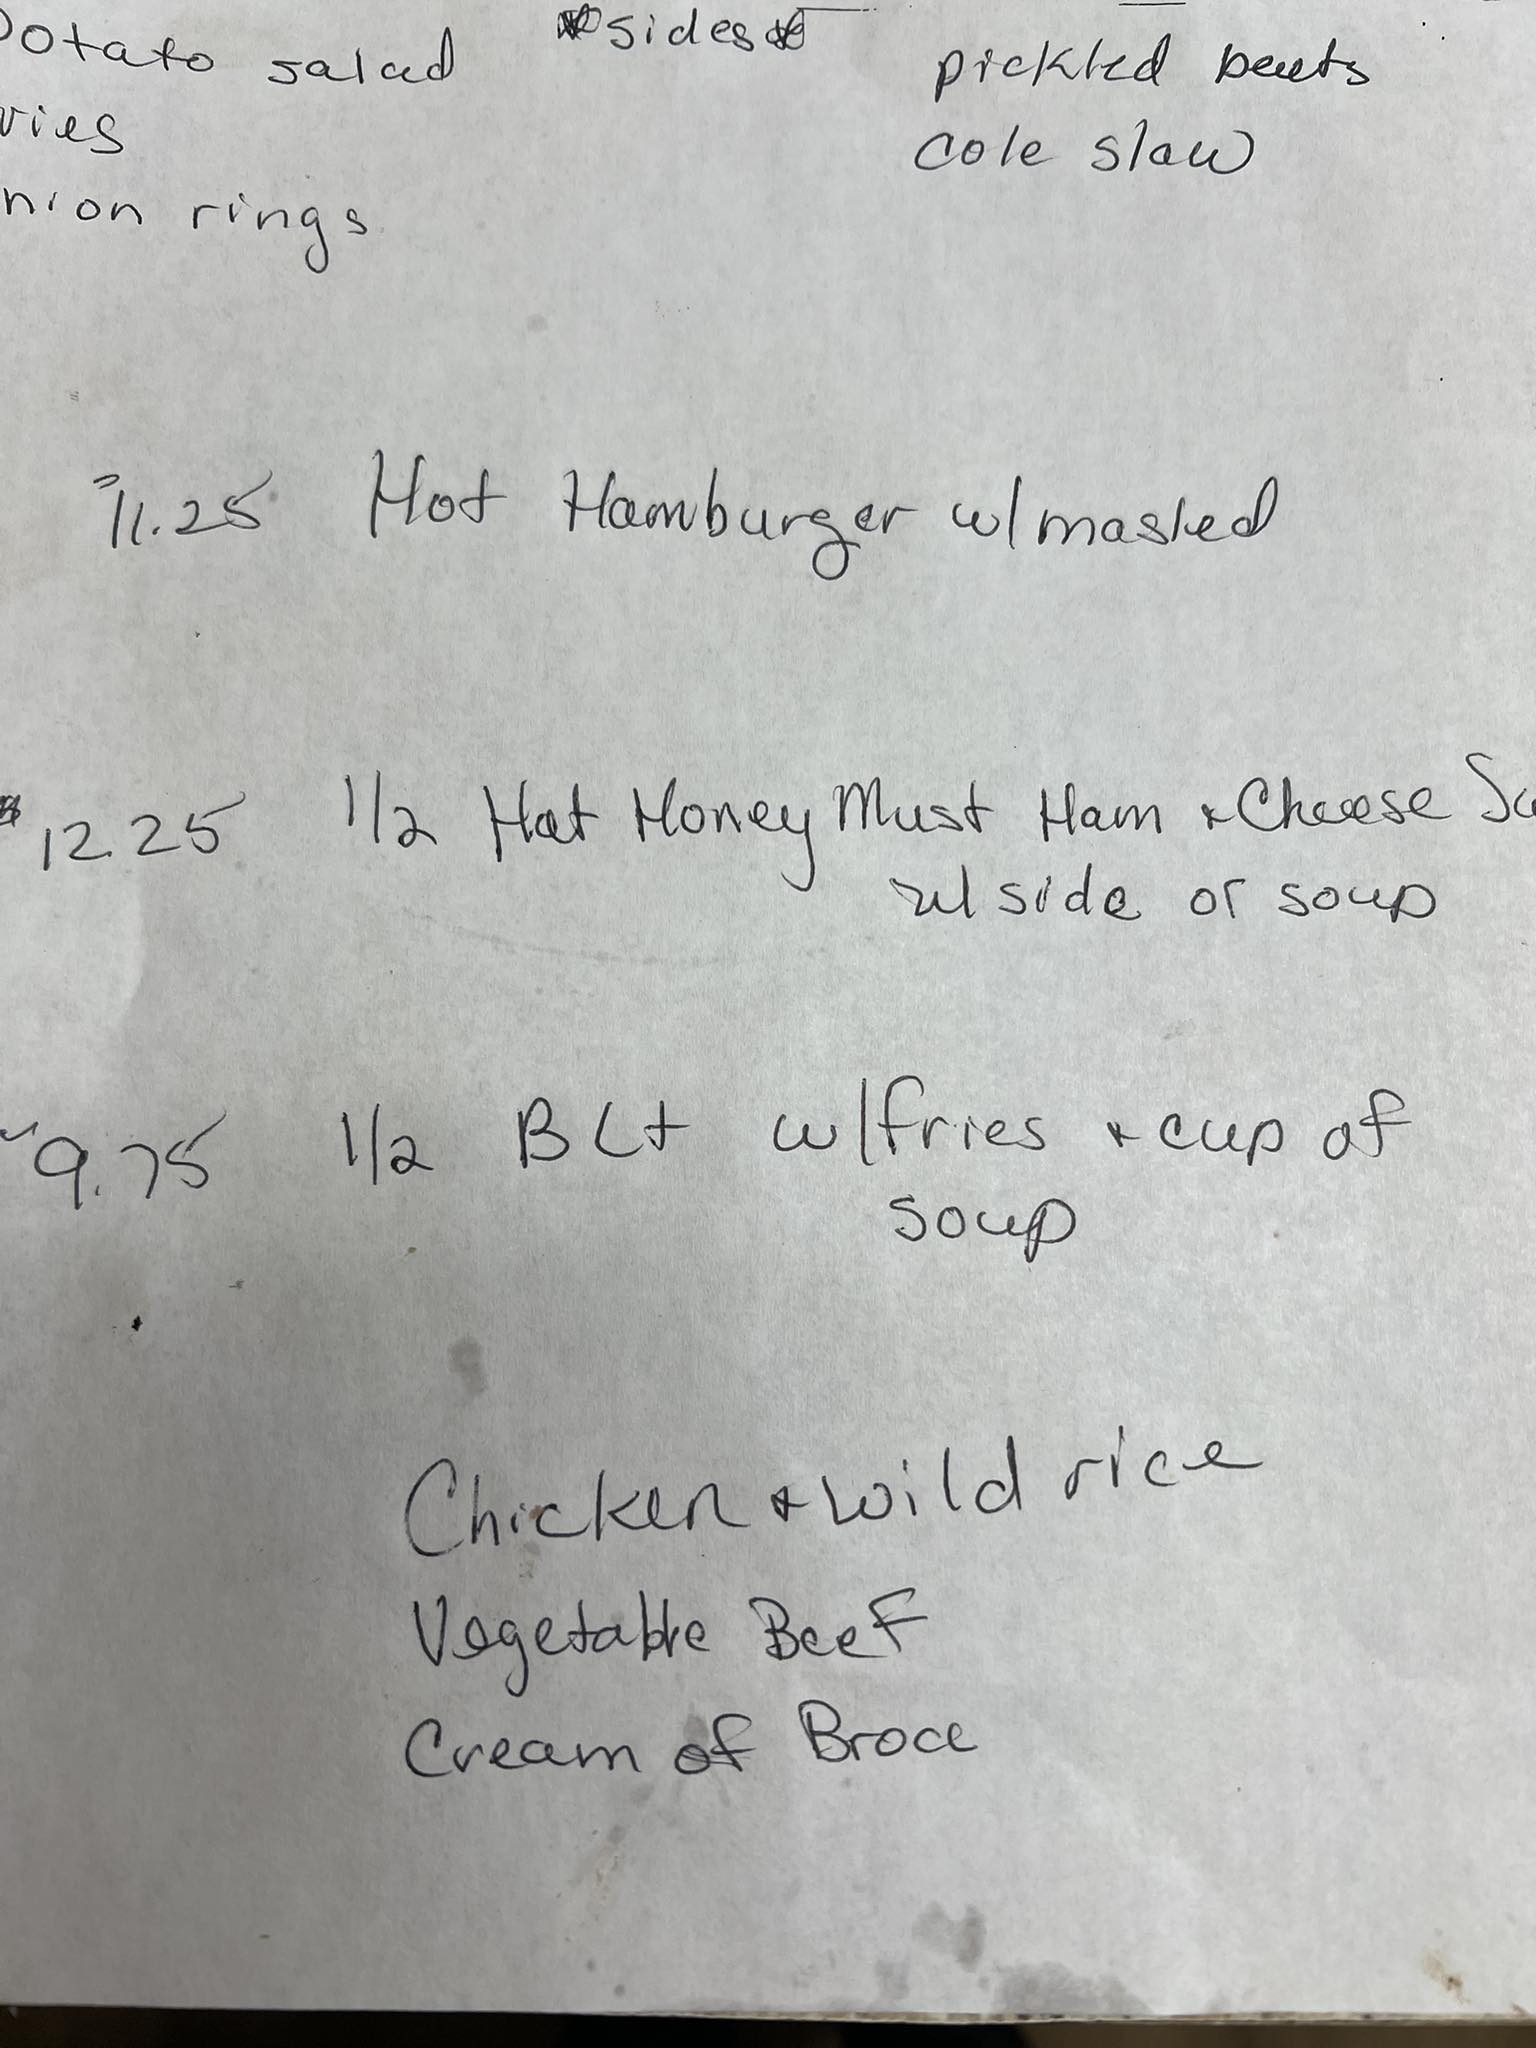 Potato salad *sides* pickled beets
ries cole slaw
nion rings
11.25 Hot Hamburger w/mashed
$12.25 1/2 Hot Honey Must Ham + Cheese Sa
w/ side or soup
9.75 1/2 BLt w/fries + cup of
soup
Chicken + wild rice
Vegetable Beef
Cream of Brocc